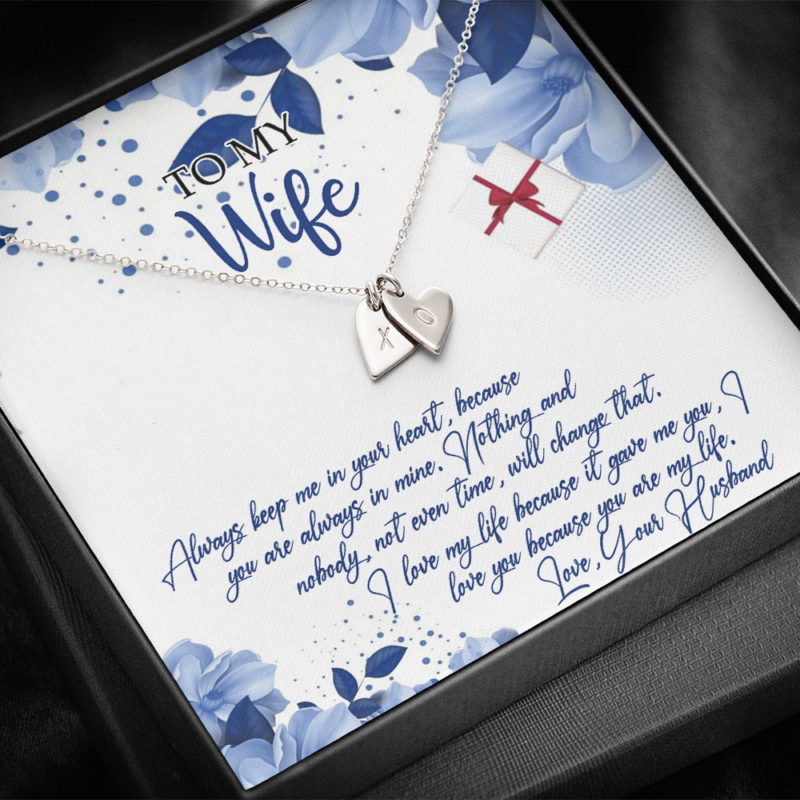 TO MY
Wife
X O
Always keep me in your heart, because
you are always in mine. Nothing and
nobody, not even time, will change that.
I love my life because it gave me you, I
love you because you are my life.
Love, Your Husband